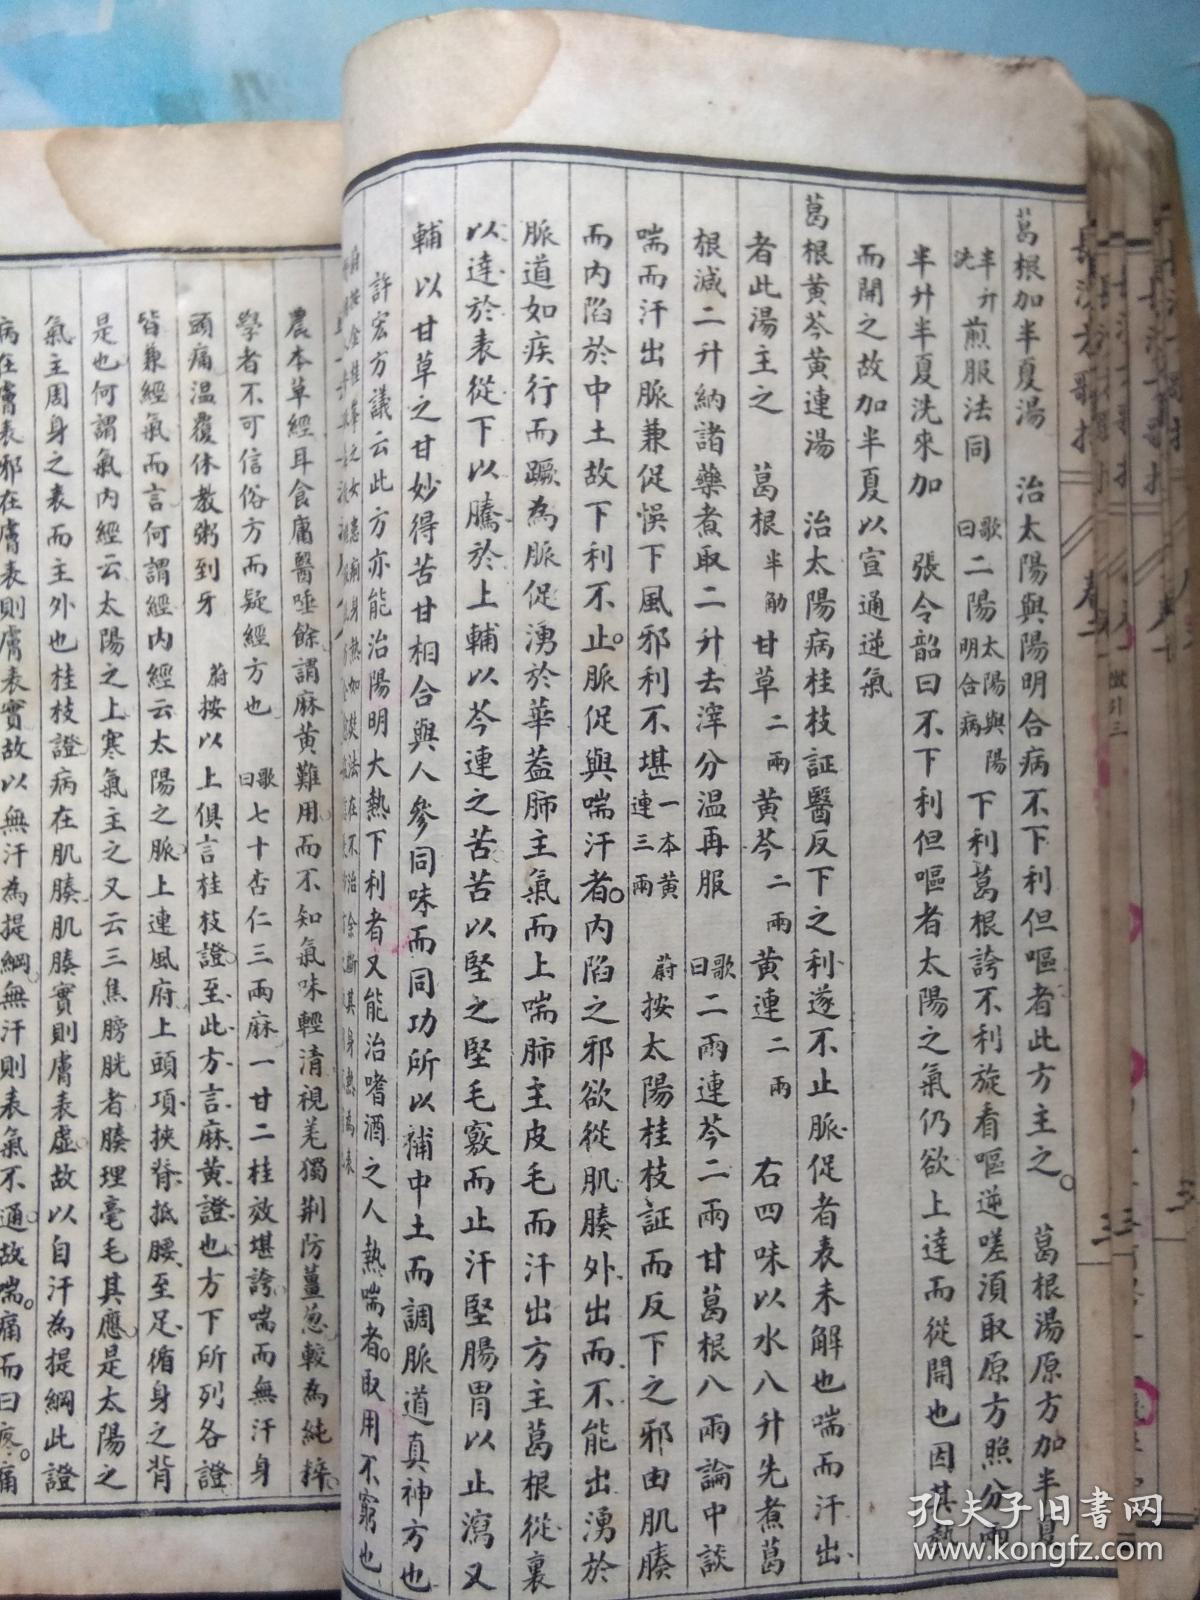 葛根加半夏湯　治太陽與陽明合病不下利但嘔者此方主之。　葛根湯原方加半夏
半升洗　煎服法同　歌曰二陽明合病太陽與陽下利葛根誇不利旋看嘔逆嗟須取原方照分兩
半升半夏洗來加　張令韶曰不下利但嘔者太陽之氣仍欲上達而從開也因其勢
而開之故加半夏以宣通逆氣
葛根黃芩黃連湯　治太陽病桂枝証醫反下之利遂不止脈促者表未解也喘而汗出
者此湯主之　葛根半觔甘草二兩黃芩二兩黃連二兩　右四味以水八升先煮葛
根減二升納諸藥煮取二升去滓分溫再服　歌曰二兩連芩二兩甘葛根八兩論中談
喘而汗出脈兼促悞下風邪利不堪一本黃連三兩　蔚按太陽桂枝証而反下之邪由肌腠
而內陷於中土故下利不止。脈促與喘汗者。內陷之邪欲從肌腠外出而不能出湧於
脈道如疾行而蹶為脈促湧於華蓋肺主氣而上喘肺主皮毛而汗出方主葛根從裏
以達於表從下以騰於上輔以芩連之苦苦以堅之堅毛竅而止汗堅腸胃以止瀉又
輔以甘草之甘妙得苦甘相合與人參同味而同功所以補中土而調脈道真神方也
許宏方議云此方亦能治陽明大熱下利者又能治嗜酒之人熱喘者。取用不窮也
農本草經耳食庸醫唾餘謂麻黃難用而不知氣味輕清視羌獨荊防薑葱較為純粹。
學者不可信俗方而疑經方也　歌曰七十杏仁三兩麻一甘二桂效堪誇喘而無汗身
頭痛溫覆休教粥到牙　蔚按以上俱言桂枝證至此方言麻黃證也方下所列各證
皆兼經氣而言何謂經內經云太陽之脈上連風府上頭項挾脊抵腰至足循身之背
是也何謂氣內經云太陽之上寒氣主之又云三焦膀胱者腠理毫毛其應是太陽之
氣主周身之表而主外也桂枝證病在肌腠肌腠實則膚表虛故以自汗為提綱此證
病在膚表邪在膚表則膚表實故以無汗為提綱無汗則表氣不通故喘。痛而曰疼。痛
孔夫子旧书网
www.kongfz.com